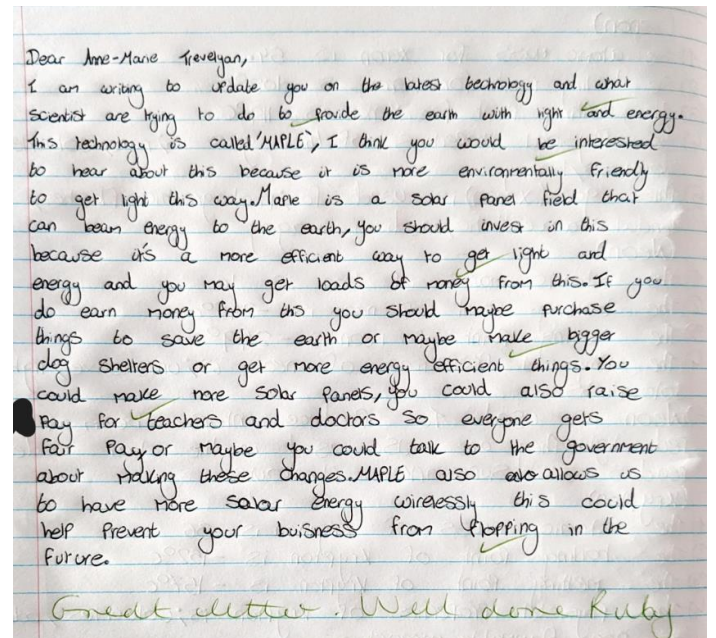 Dear Anne-Marie Trevelyan,
I am writing to update you on the latest technology and what
scientist are trying to do to provide the earth with light and energy.
This technology is called 'MAPLE', I think you would be interested
to hear about this because it is more environmentally friendly
to get light this way. Maple is a solar panel field that
can beam energy to the earth, you should invest in this
because it's a more efficient way to get light and
energy and you may get loads of money from this. If you
do earn money from ths you should maybe purchase
things to save the earth or maybe make bigger
dog shelters or get more energy efficient things. You
could make more solar panels, you could also raise
pay for teachers and doctors so everyone gets
fair pay or maybe you could talk to the government
about making these changes. MAPLE also allows us
to have more solar energy wirelessly this could
help prevent your buisness from flopping in the
future.
Great letter. Well done Ruby